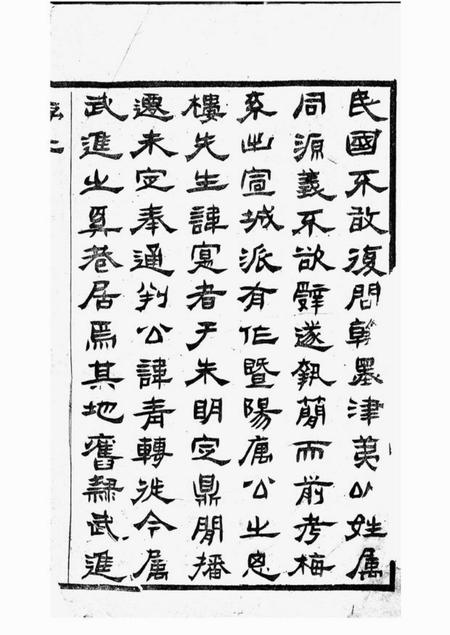 民國不敢復問翰墨津夷以姓属
同源義不欲辭遂執簡而前考梅
系出宣城派有仁暨陽廣公之恩
樓先生諱寔者于朱明定鼎間播
遷未定奉通判公諱青轉徙今属
武進之奚巷居焉其地舊隸武進
序二